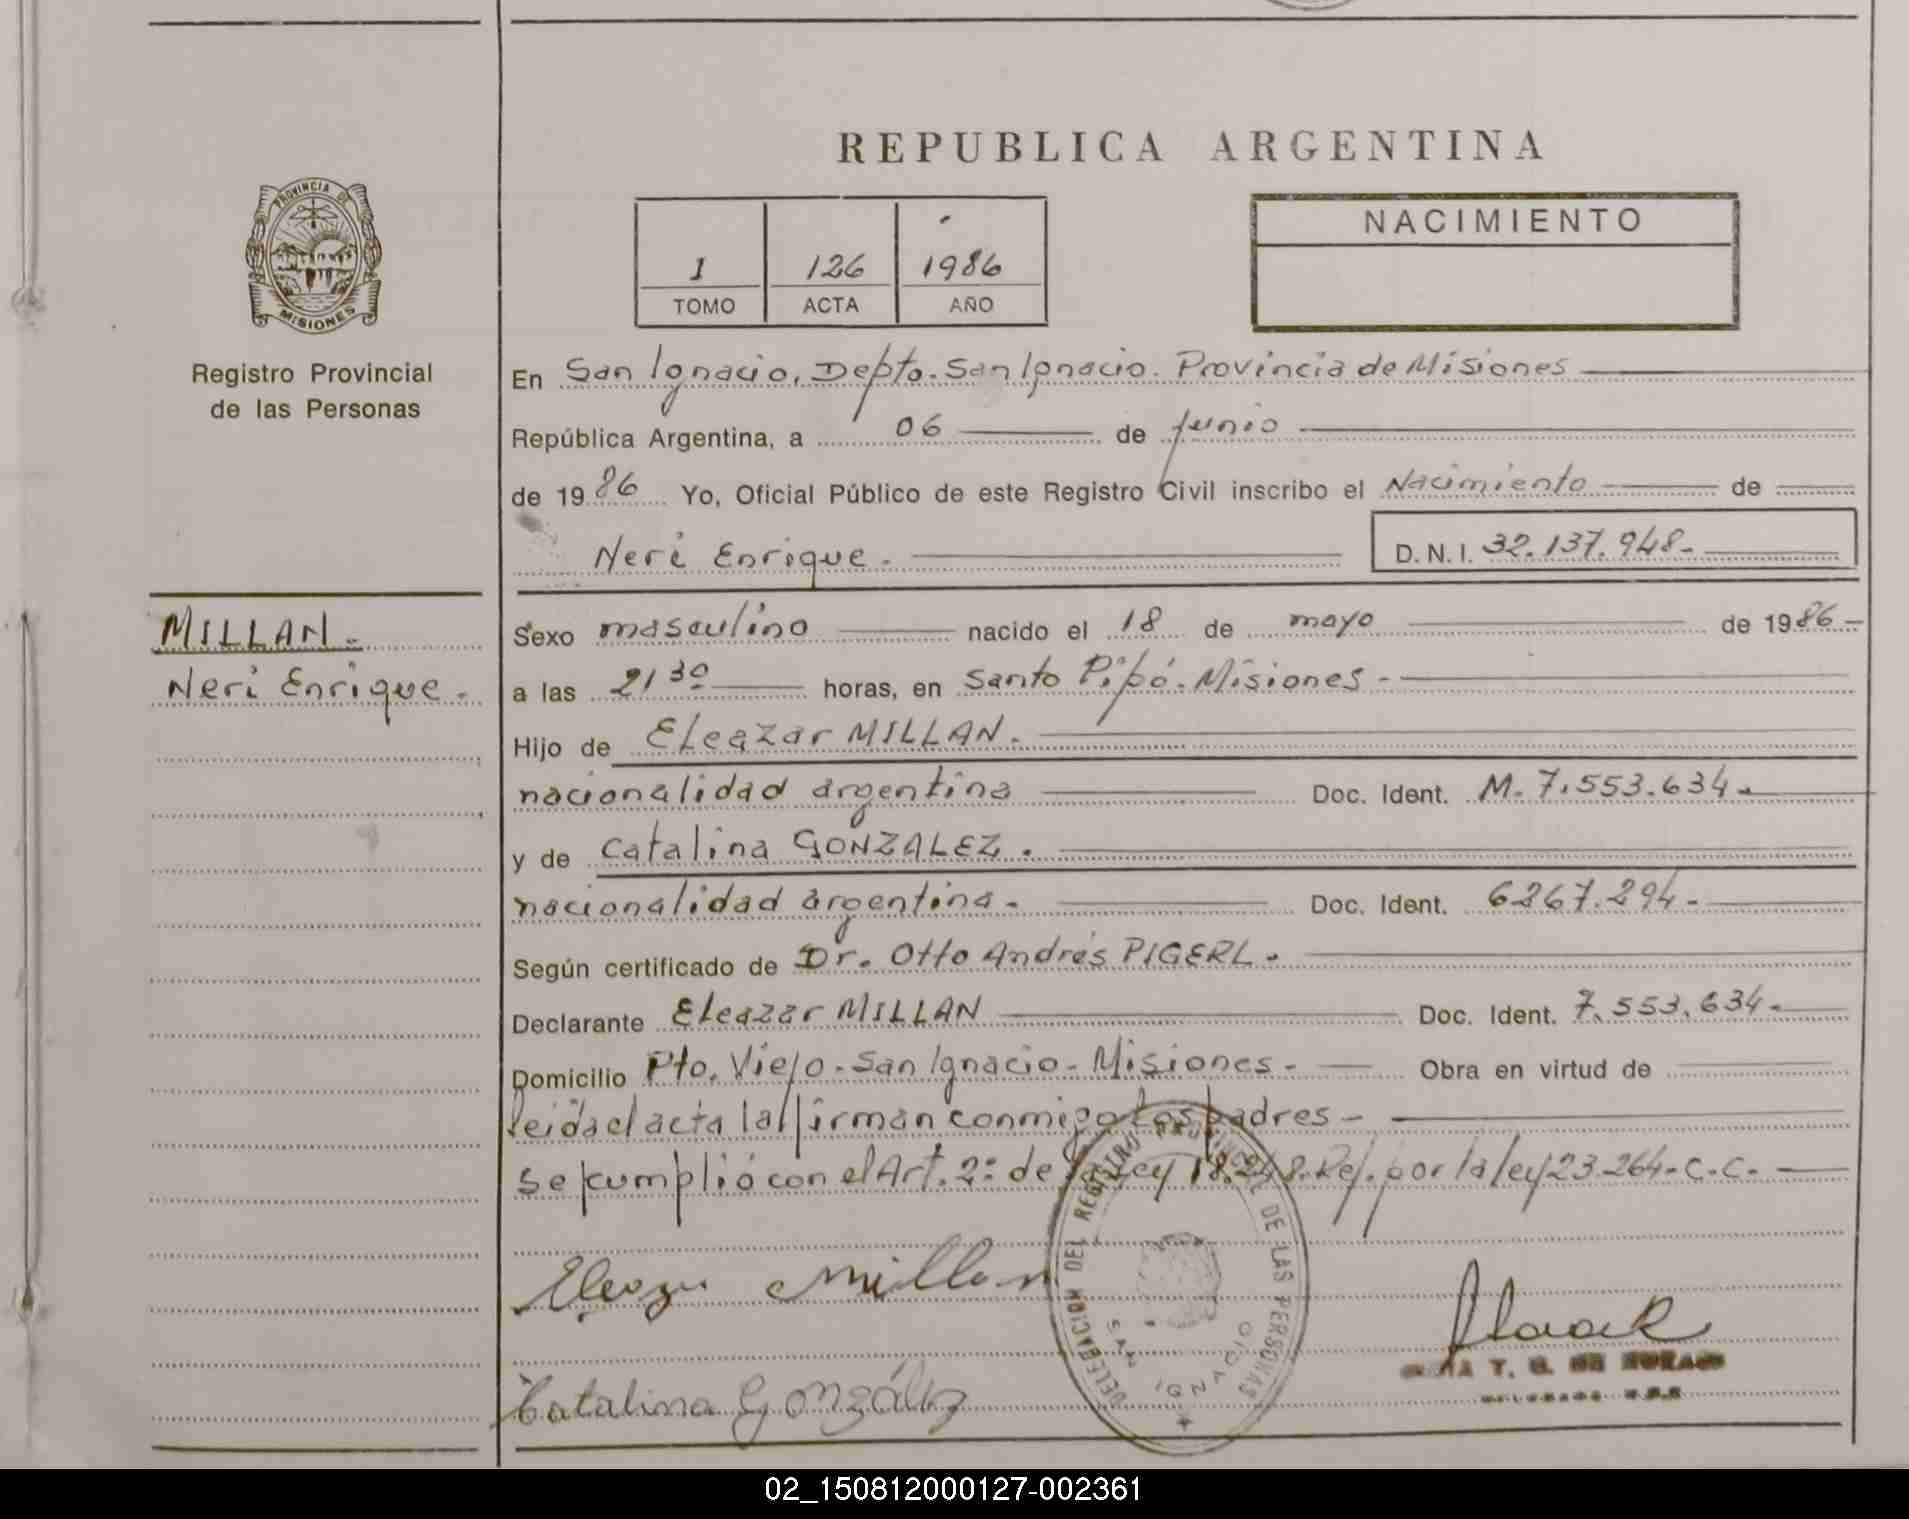 REPUBLICA ARGENTINA
PROVINCIA DE
MISIONES
Registro Provincial
de las Personas
1 126 1986
TOMO ACTA AÑO
NACIMIENTO
En San Ignacio, Depto. San Ignacio. Provincia de Misiones
República Argentina, a 06 de junio
de 1986 Yo, Oficial Público de este Registro Civil inscribo el Nacimiento de
Neri Enrique. D.N.I. 32.137.948-
MILLAN.-
Neri Enrique.
Sexo masculino nacido el 18 de mayo de 1986-
a las 21 30 horas, en Santo Pipó-Misiones-
Hijo de Eleazar MILLAN.
nacionalidad argentina Doc. Ident. M. 7.553.634-
y de Catalina GONZALEZ.
nacionalidad argentina- Doc. Ident. 6267.294-
Según certificado de Dr. Otto Andrés PIGERL-
Declarante Eleazar MILLAN Doc. Ident. 7.553.634-
Domicilio Pto. Viejo-San Ignacio-Misiones- Obra en virtud de
leida el acta la firman conmigo los padres-
se cumplió con el Art. 2º de la ley 18.248. Ref. por la ley 23.264-C.C.-
Eleazar Millan
DELEGACION DEL REGISTRO PROVINCIAL DE LAS PERSONAS
SAN IGNACIO
T. G. DE
Catalina González
02_150812000127-002361